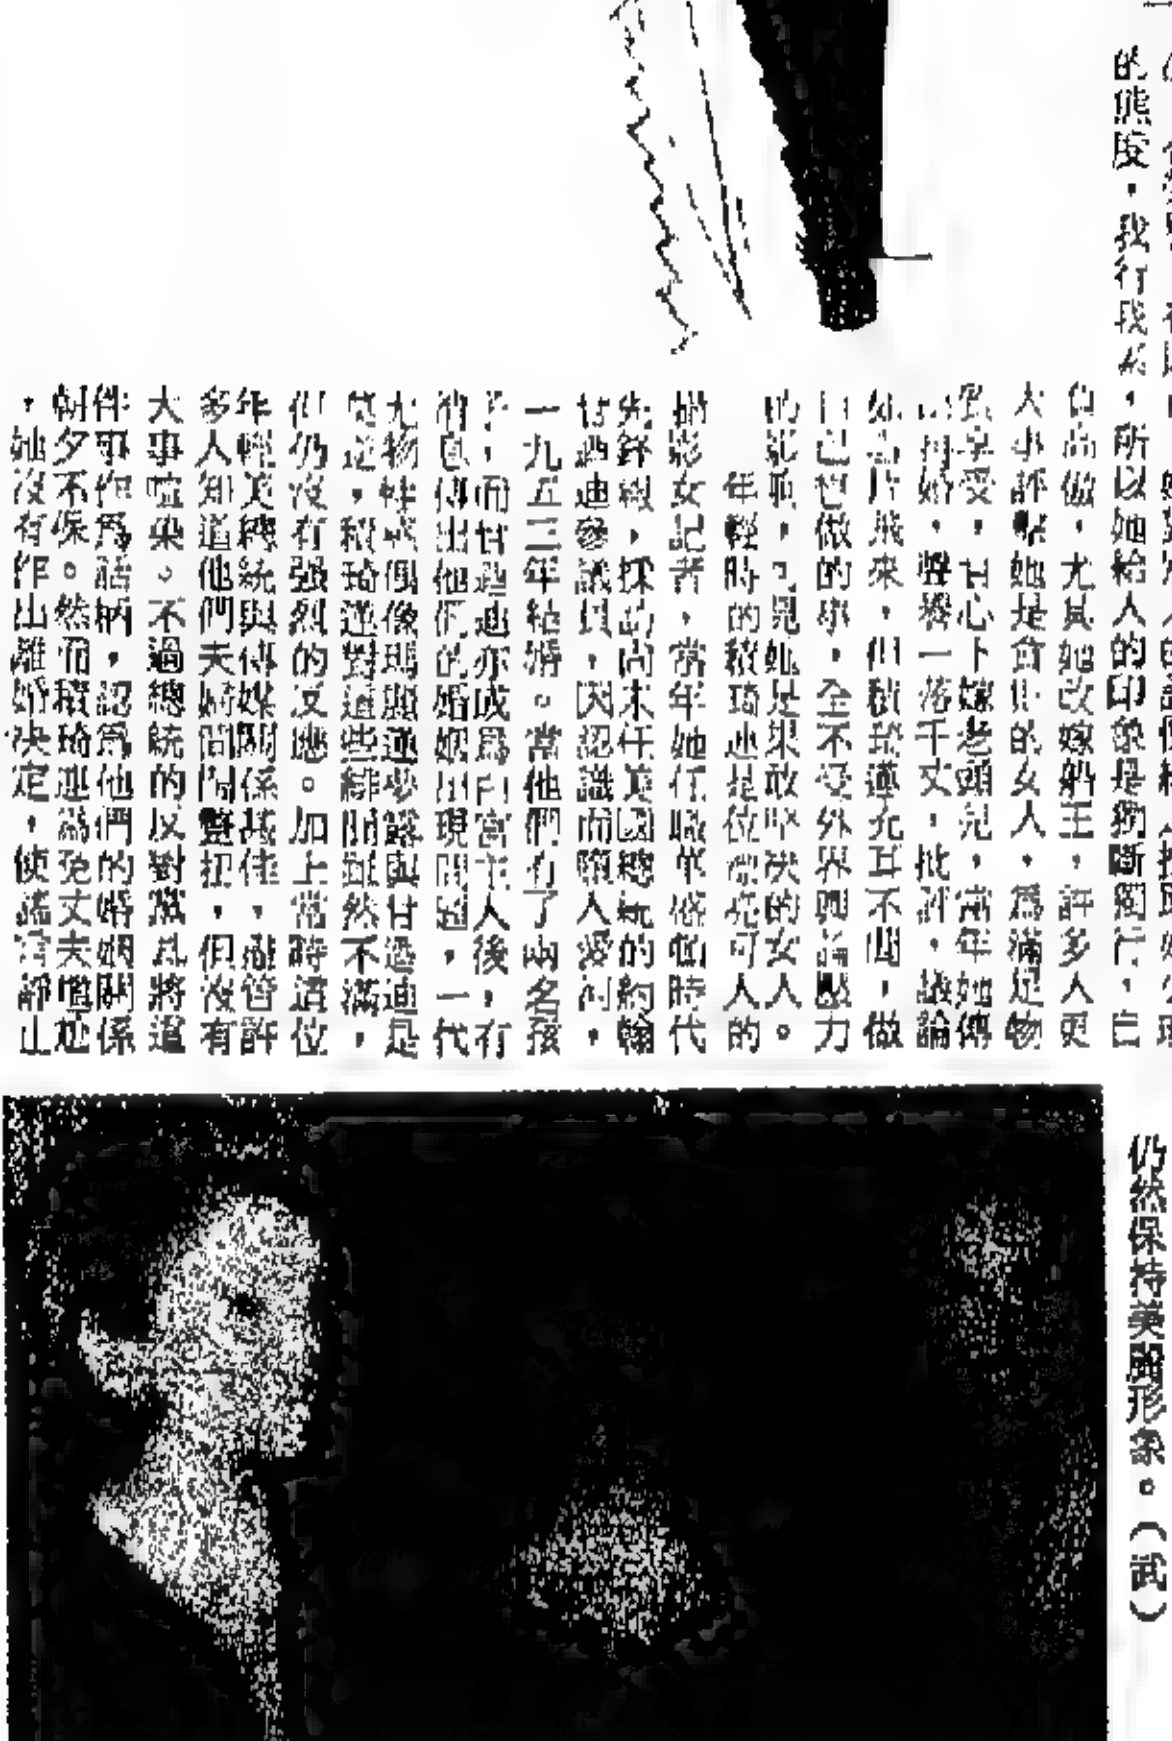 的態度，我行我素，所以她給人的印象是獨斷獨行，自
負高傲，尤其她改嫁船王，許多人更
大事評擊她是貪財的女人，為滿足物
質享受，甘心下嫁老頭兒，當年她傳
出再婚，聲譽一落千丈，批評，議論
如雪片飛來，但積琦蓮充耳不聞，做
自己想做的事，全不受外界輿論壓力
的影响，可見她是果敢堅决的女人。
年輕時的積琦蓮是位漂亮可人的
攝影女記者，當年她任職華盛頓時代
先鋒報，採訪尚未任美國總統的約翰
甘迺迪參議員，因認識而墮入愛河，
一九五三年結婚。當他們有了兩名孩
子，而甘迺迪亦成爲白宮主人後，有
消息傳出他倆的婚姻出現問題，一代
尤物性感偶像瑪麗蓮夢露與甘迺迪是
莫逆，積琦蓮對這些緋聞雖然不滿，
但仍沒有强烈的反應。加上當時這位
年輕美總統與傳媒關係甚佳，儘管許
多人知道他們夫婦間鬧蹩扭，但沒有
大事喧染。不過總統的反對黨凡將這
件事作爲話柄，認爲他們的婚姻關係
朝夕不保。然而積琦蓮爲免丈夫尷尬
，她沒有作出離婚决定，使謠言靜止
仍然保持美麗形象。（武）